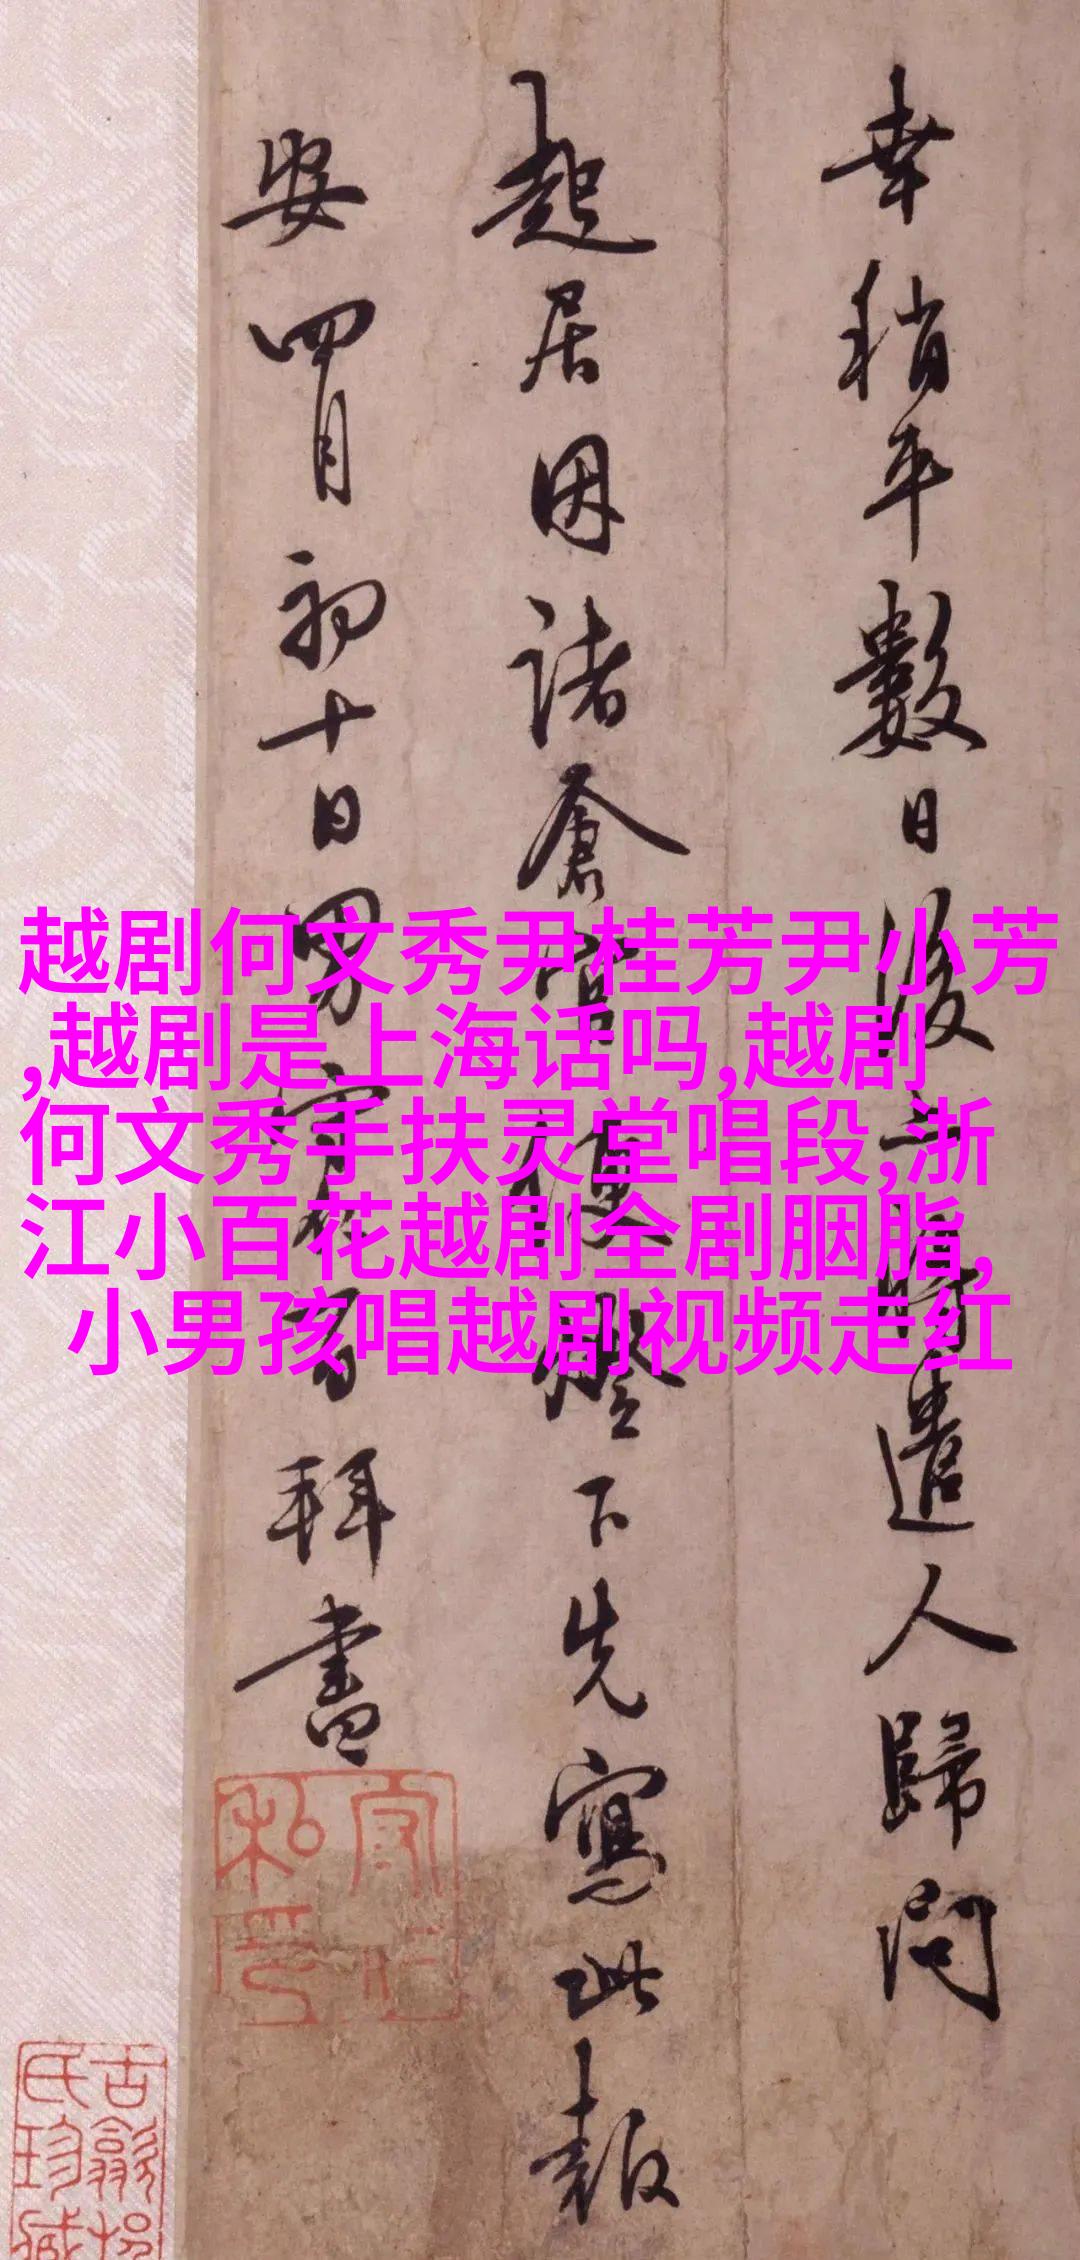 幸稍平數日後
遣人歸問
起居因諸倉
下先寫此報
安四月初十日男守
百拜書
越剧何文秀尹桂芳尹小芳
,越剧是上海话吗,越剧
何文秀手扶灵堂唱段,浙
江小百花越剧全剧胭脂,
小男孩唱越剧视频走红
私印